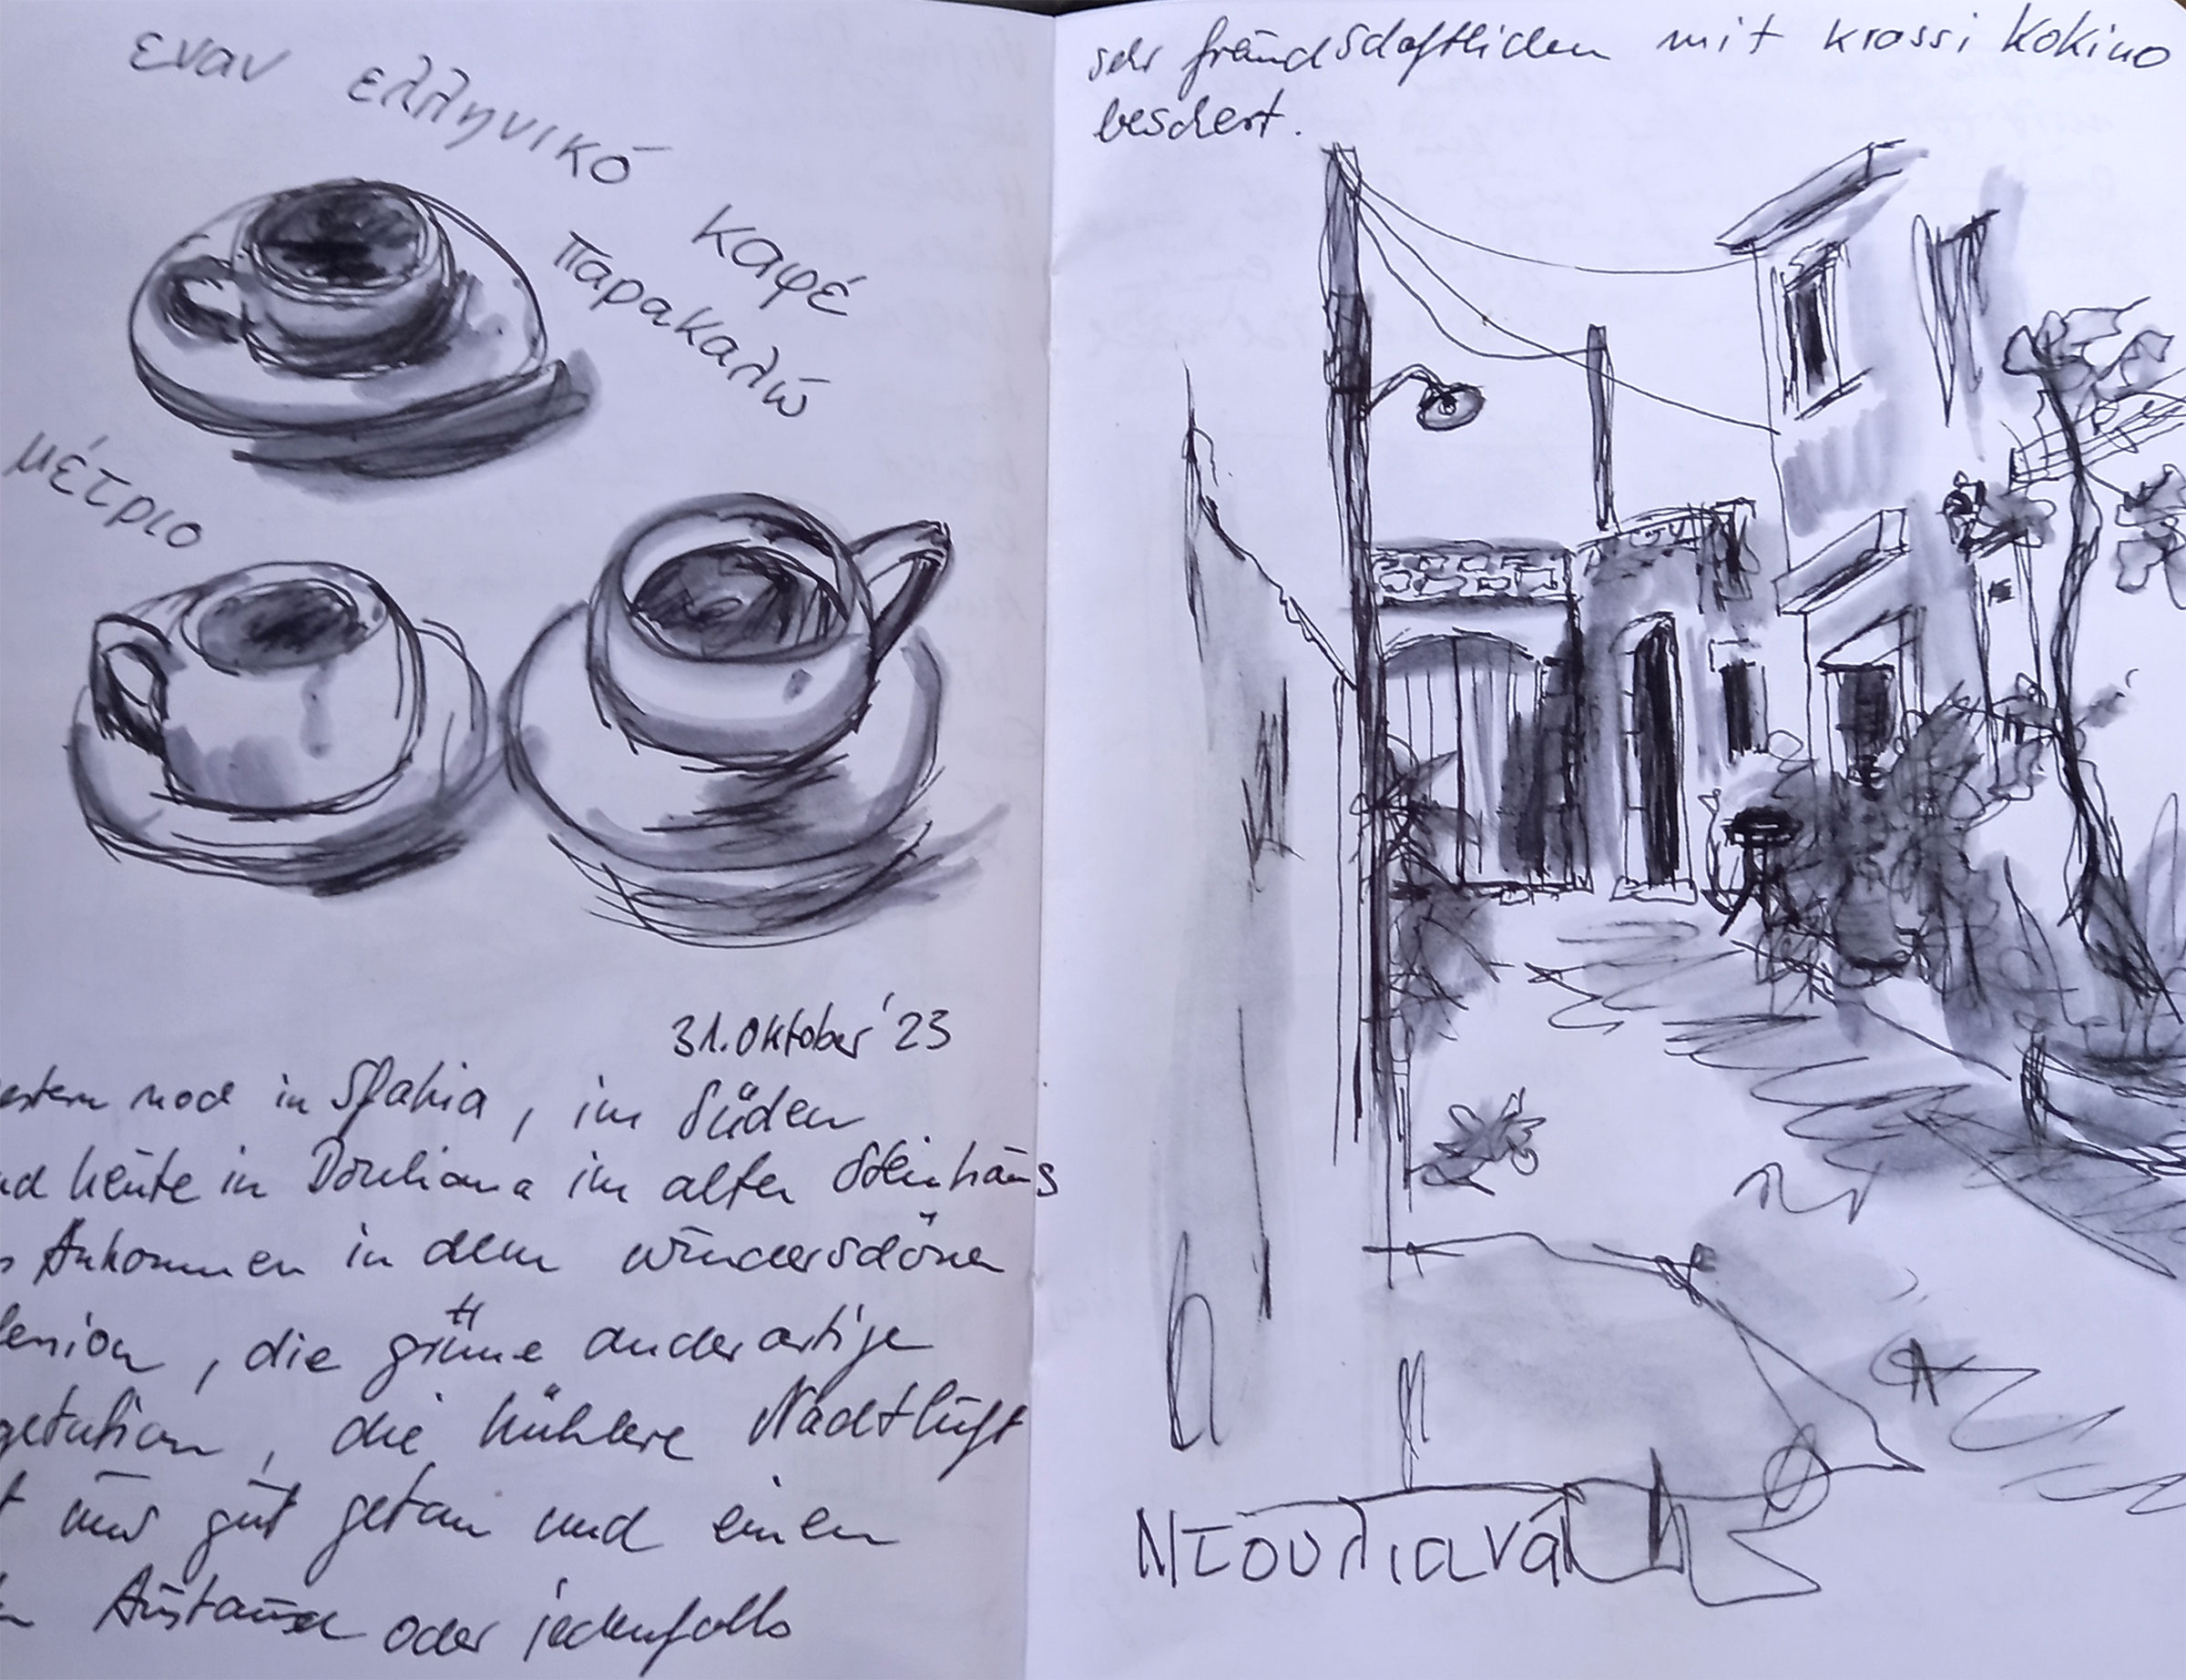 εναν ελληνικό
καφέ
παρακαλώ
μέτριο
31. Oktober '23
estern noch in Sfakia, im Süden
nd heute in Douliana im alten Steinhaus
s Ankommen in dem wunderschönen
ension, die grüne andersartige
getation, die kühlere Nachtluft
t uns gut getan und einen
Austausch oder jedenfalls
sehr freundschaftlichen mit krassi kokino
beschert.
Ντουλιανά